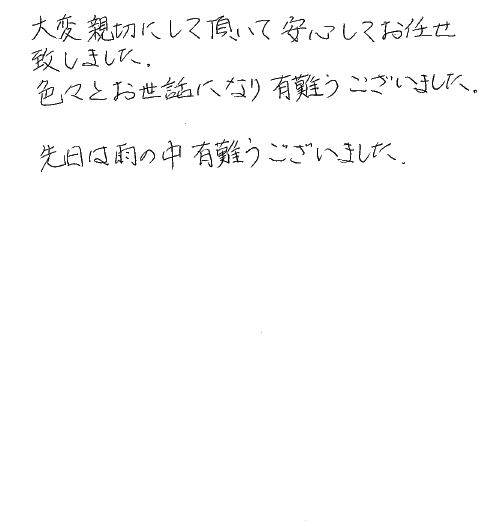 大変親切にして頂いて安心してお任せ
致しました.
色々とお世話になり有難うございました。
先日は雨の中有難うございました.